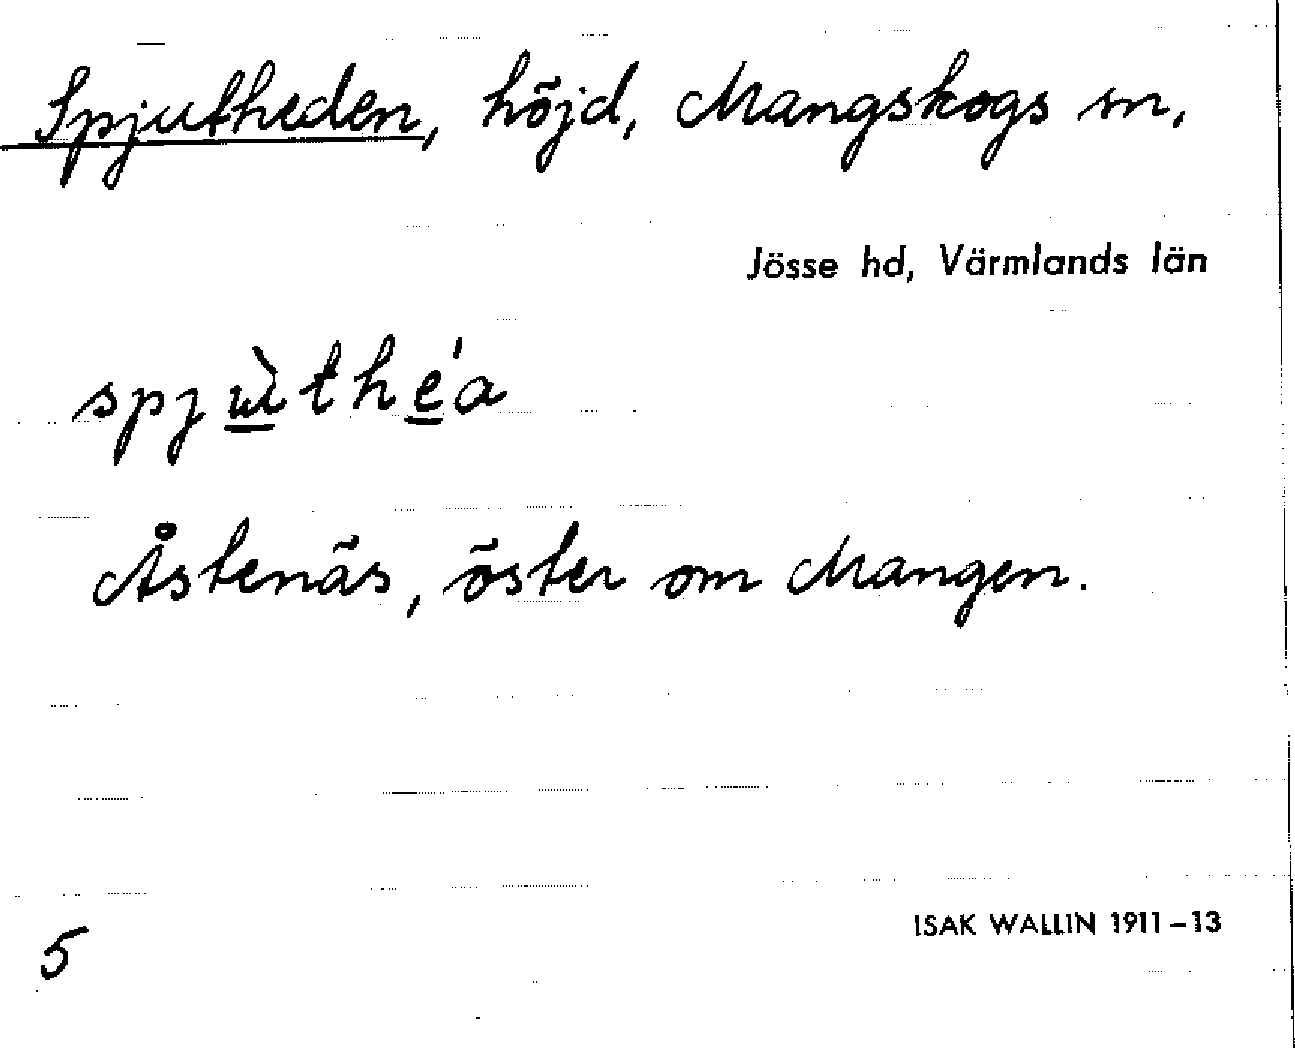 Spjutheden, höjd, Mangskogs sn,
Jösse hd, Värmlands län
spjùthe'a
Åstenäs, öster om Mangen.
5
ISAK WALLIN 1911–13